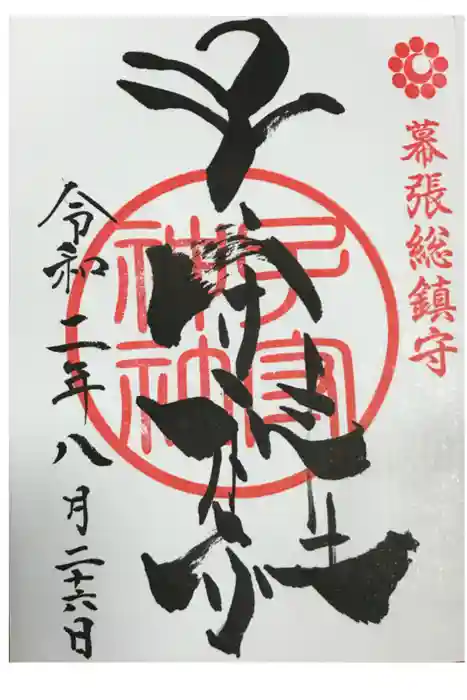 幕張総鎮守
子守神社
令和二年八月二十六日